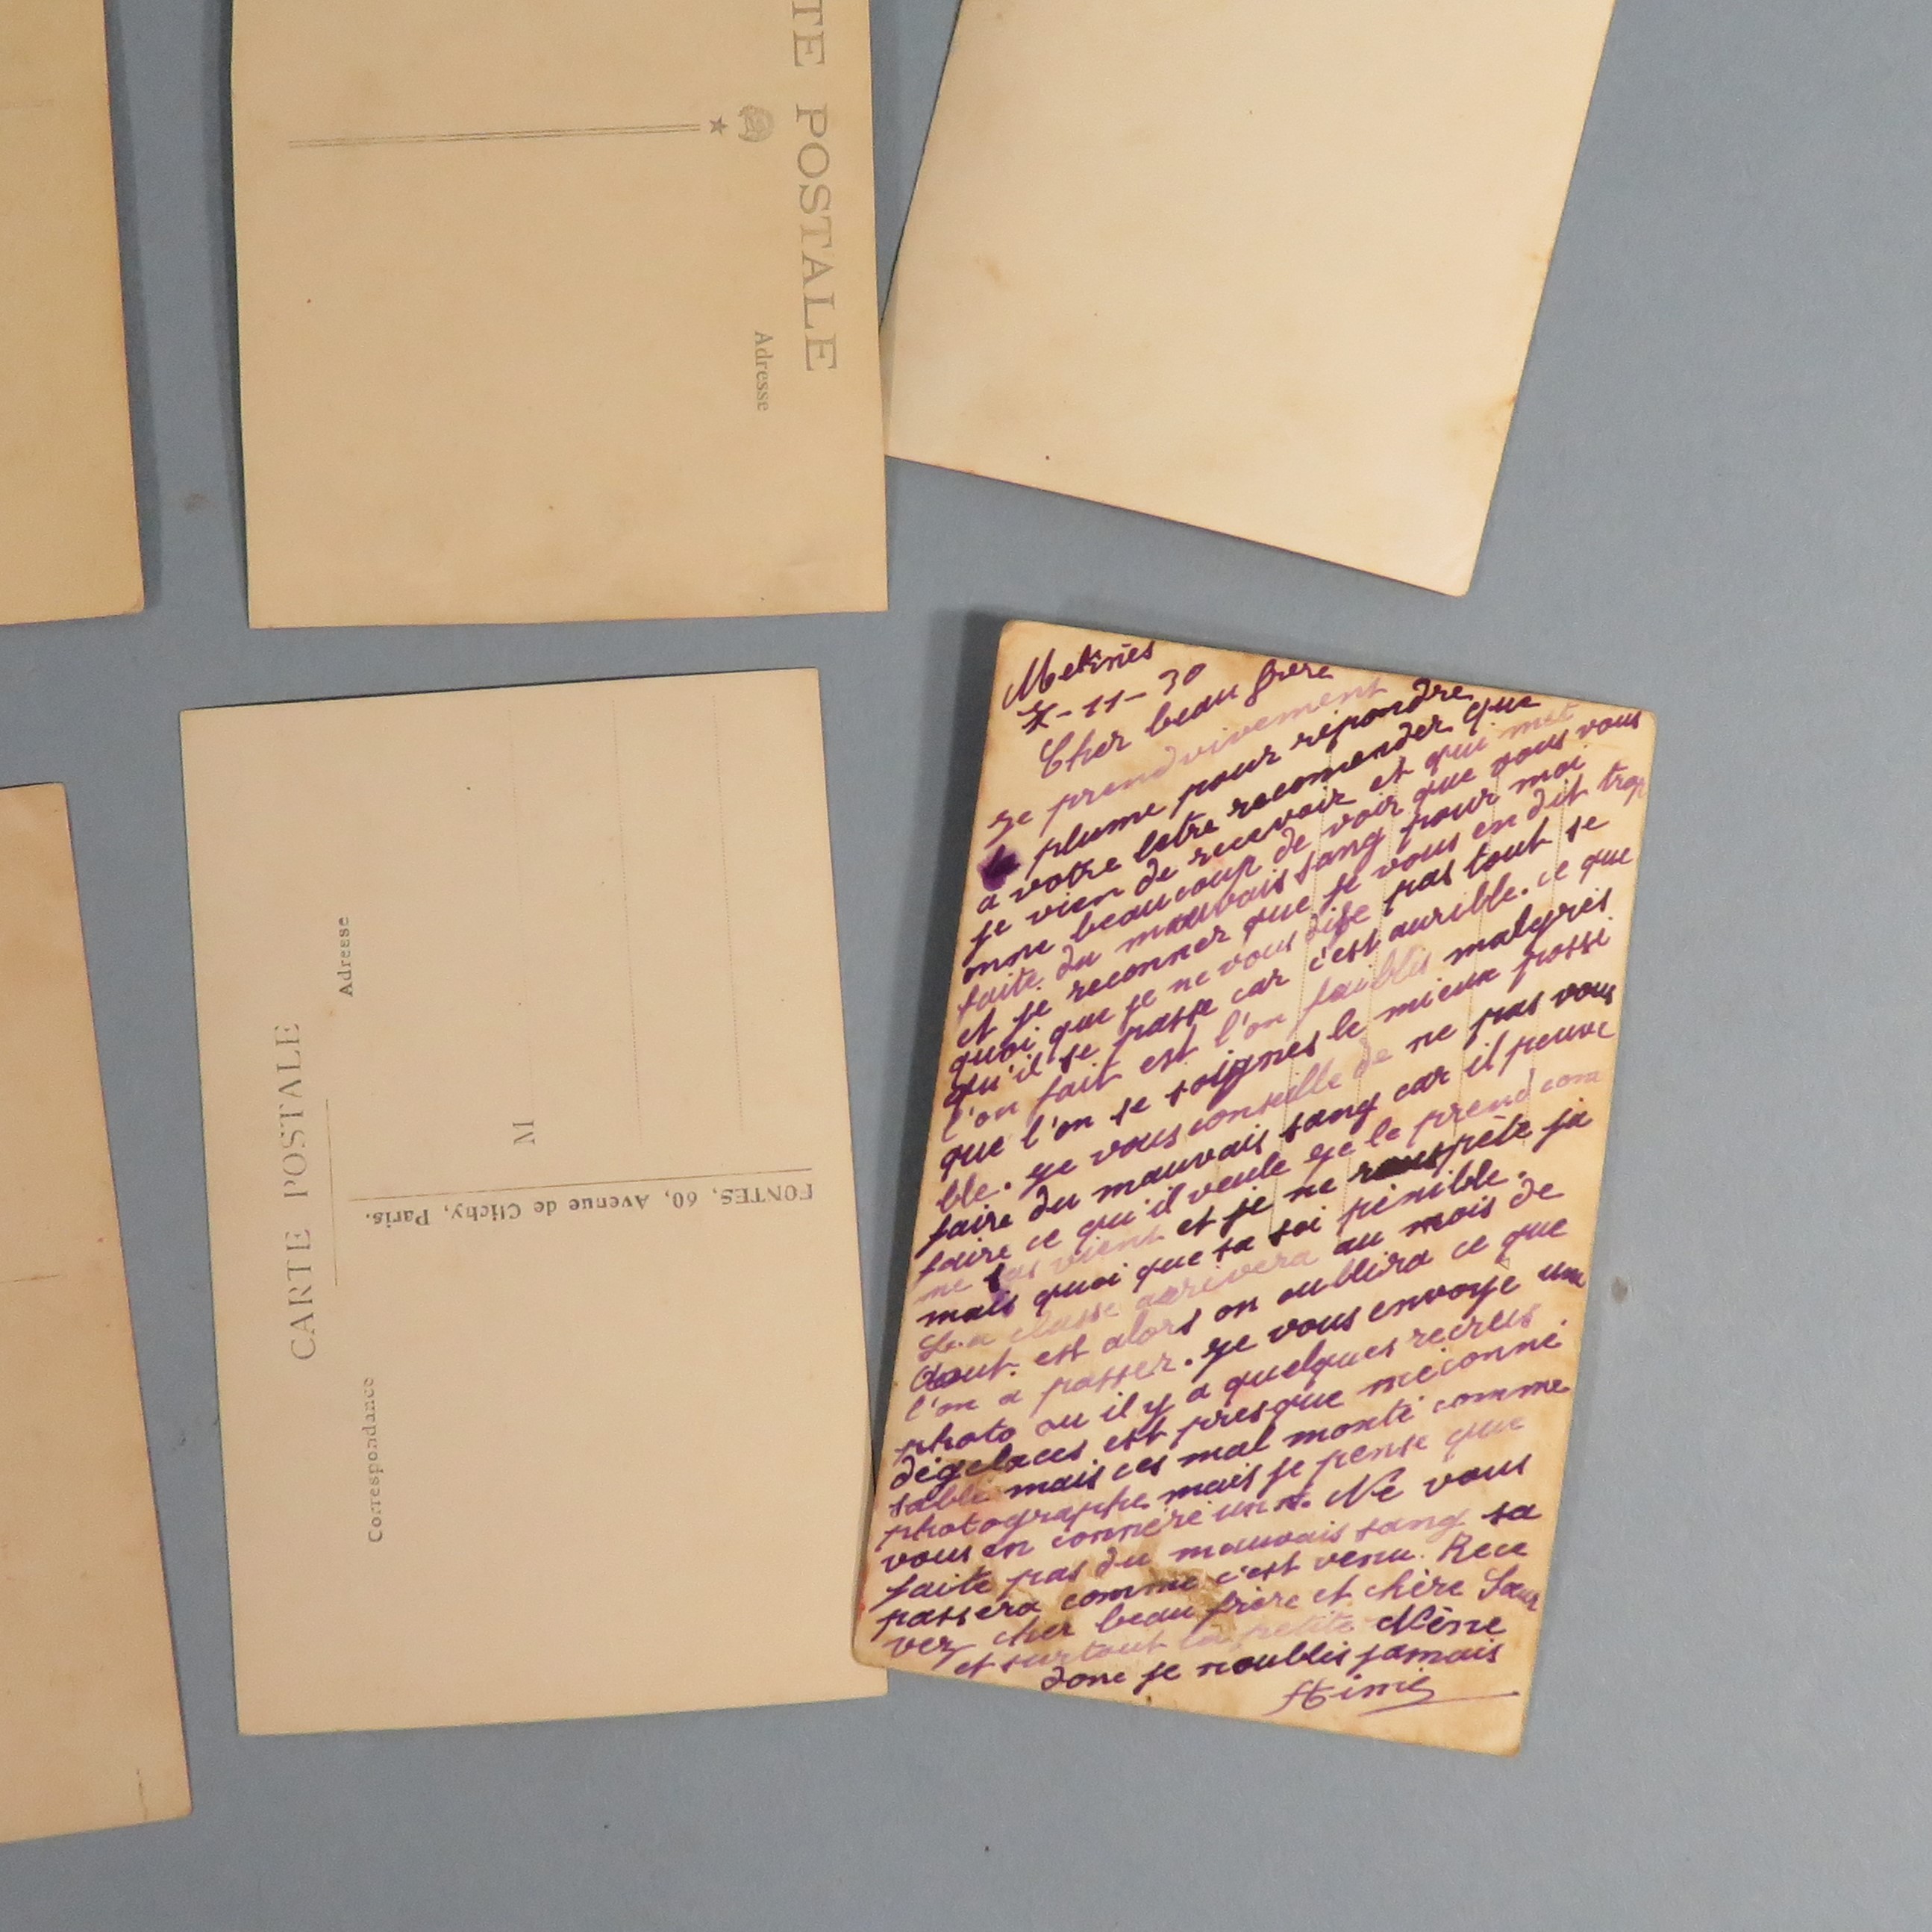 TE POSTALE
Adresse
CARTE POSTALE
Correspondance
Adresse
M
FONTES, 60, Avenue de Clichy, Paris.
Meknes
7-11-30
Cher beau frere
Je prend vivement
la plume pour répondre
a votre letre recomender que
je vien de recevoir et qui met
onne beaucoup de voir que vous vous
faite du mauvais sang pour moi
et je reconner que je vous en dit trop
quoi que je ne vous dise pas tout se
qu'il se passe car c'est aurible. ce que
l'on fait est l'on faiblis malgres
que l'on se soignes le mieux possi
ble. Je vous conseille de ne pas vous
faire du mauvais sang car il peuve
faire ce qu'il veule je le prend com
me sas vient et je ne rouspète ja
mais quoi que sa soi pénible.
La classe arrivera au mois de
Aout. est alors on oublira ce que
l'on a passer. Je vous envoye une
photo ou il y a quelques recrus
dégelaces est presque méconné
sable mais ces mal monté comme
photographe mais je pense que
vous en connere un. Ne vous
faite pas du mauvais sang sa
passera comme c'est venu. Rece
vez cher beau frère et chère Sœur
et surtout la petite Mème
donc je n'oublis jamais
Aimé